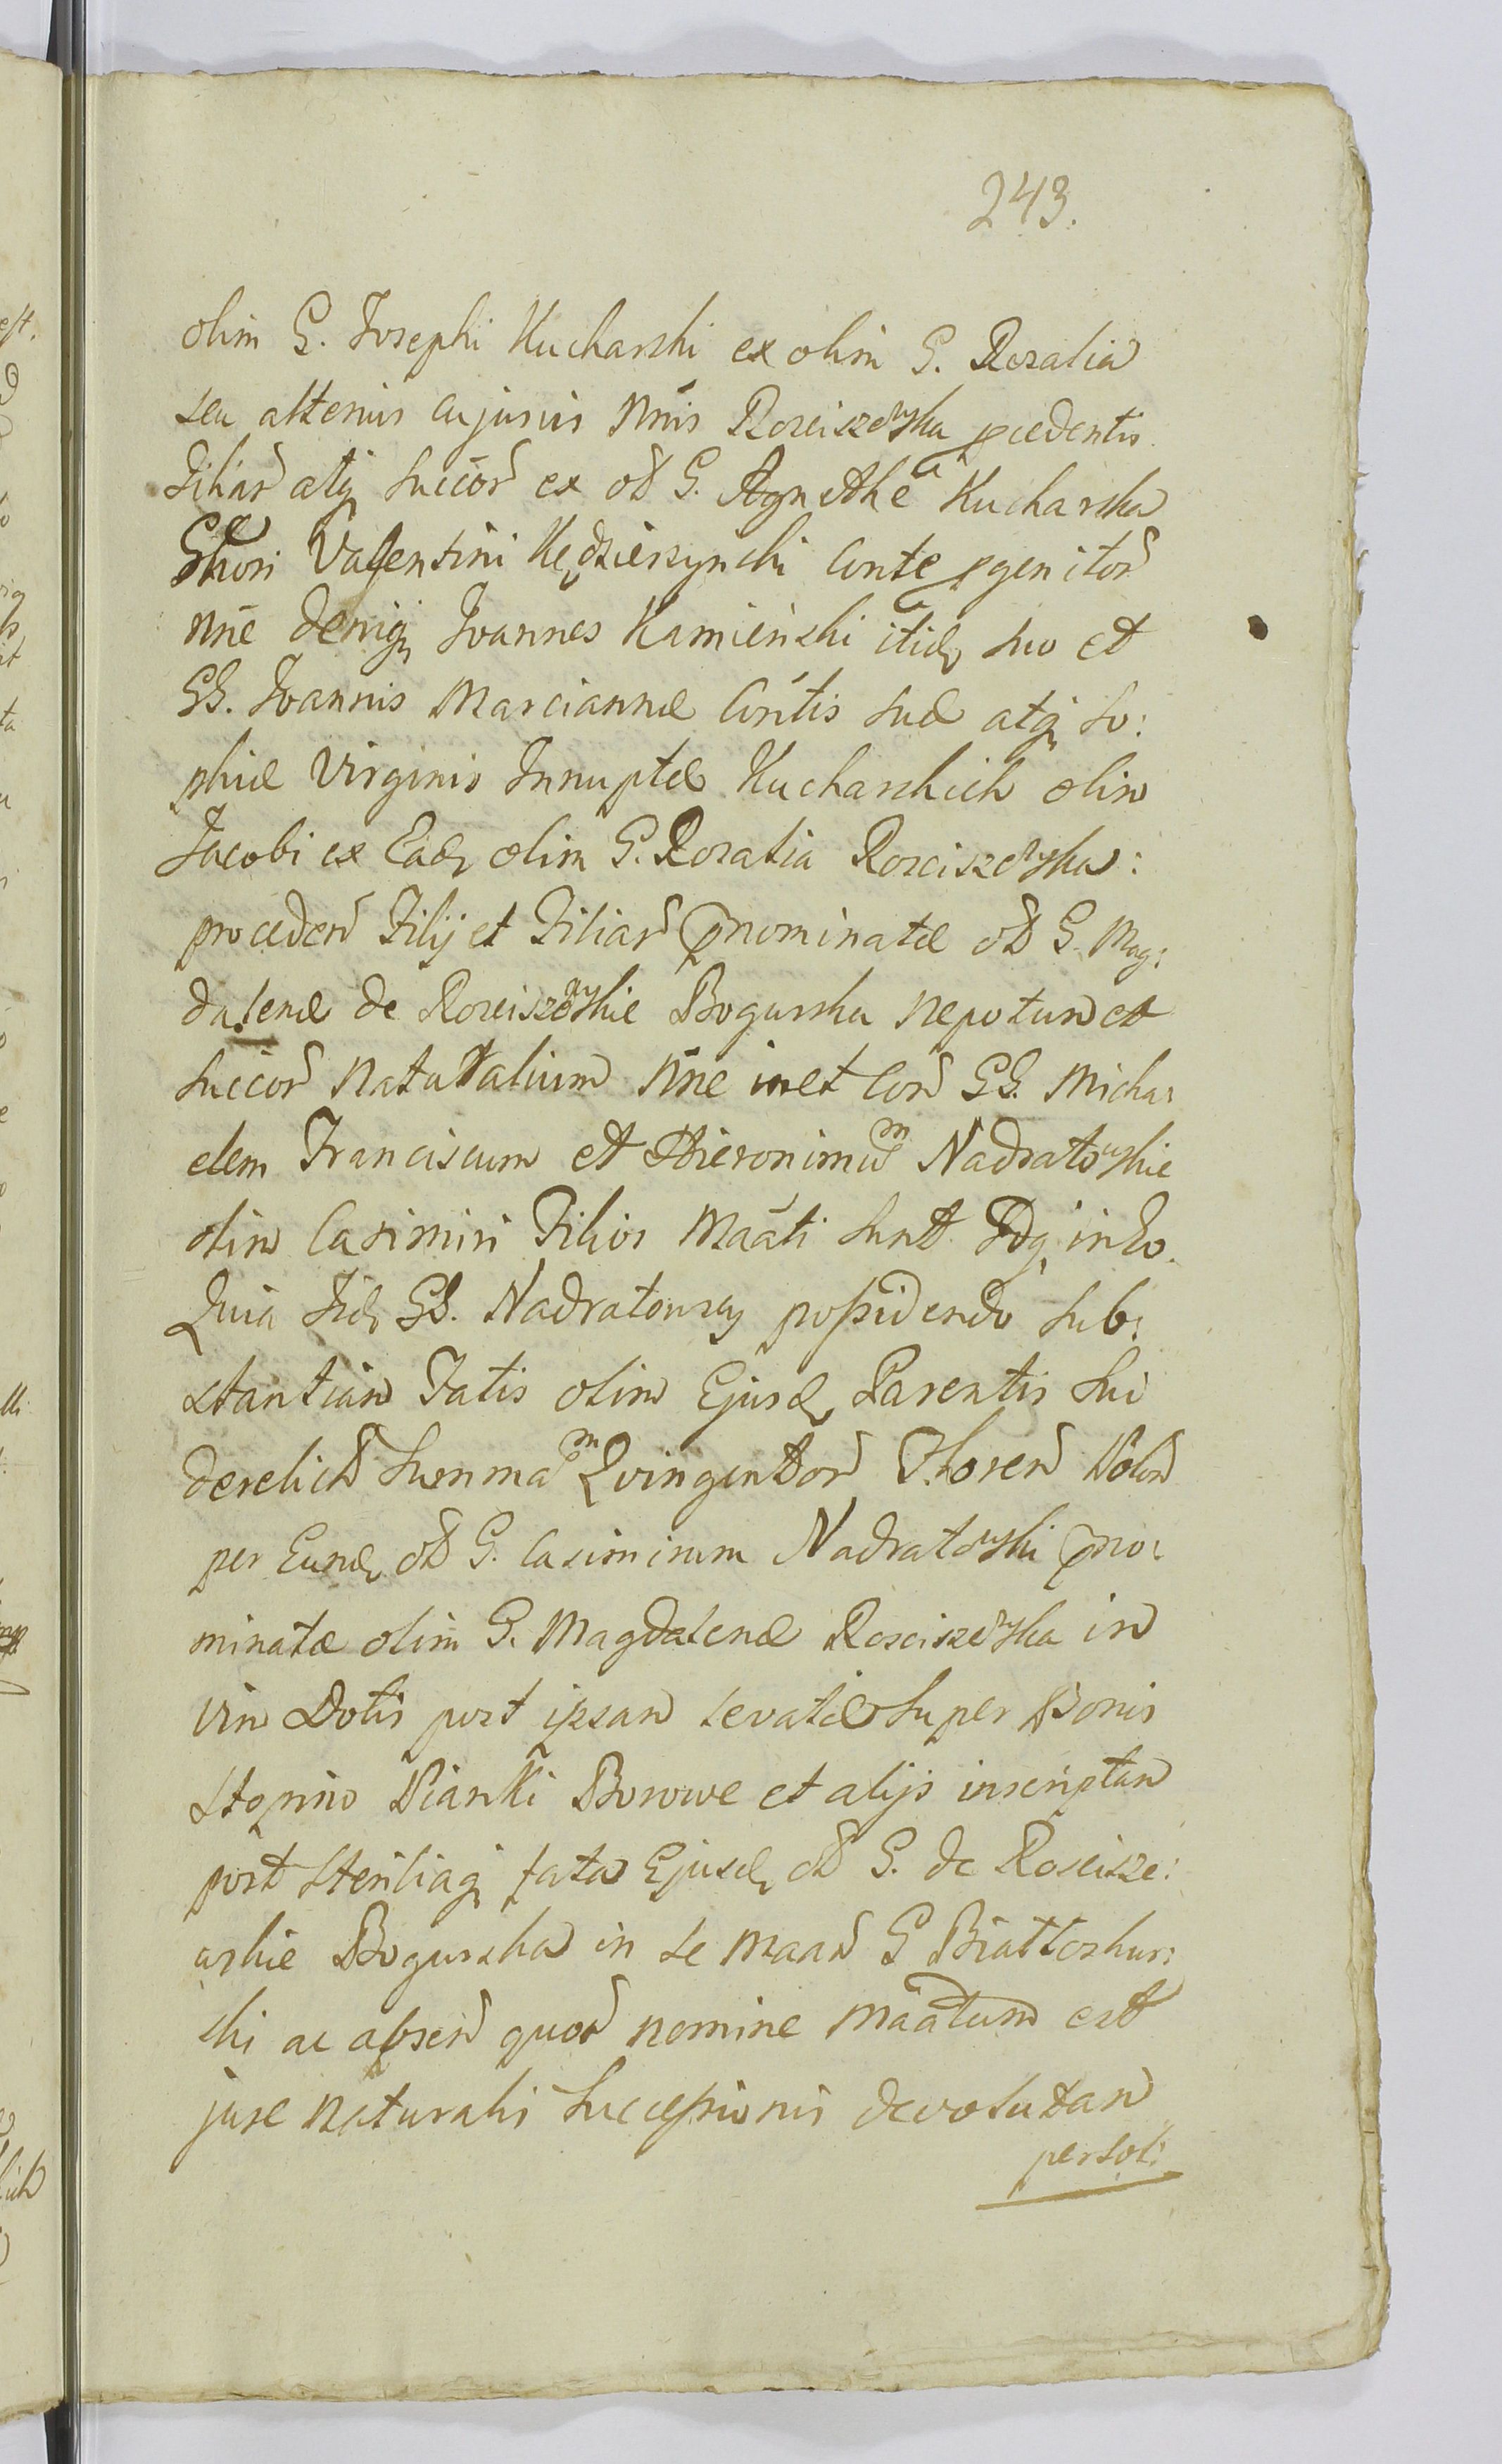 243.
olim G. Josephi Kucharski ex olim G. Rozalia
seu alterius cujusvis Nnis Rosciszewska pcedentis
Filiar atq succor ex od G. Agnethe Kucharska
Valentini Kędzierzynski Conte pgenitor
nne deniq Joannes Kamieński itid suo et
GG. Joannis Marciannæ Contis suæ atq So:
phiæ Virginis Innuptæ Kucharskich olim
Jacobi ex Ead olim G. Rozalia Rosciszewska:
proceden Filij et Filiar pnominatæ od G. Mag:
dalenæ de Rosciszewskie Bogurska Nepotum et
succor Natutalium Nne inet Con GG. Micha:
elem Franciscum et Hieronimum Nadratowskie
olim Casimiri Filios Maati sunt Idq in Eo
Quia Iid GG. Nadratowscy possidendo sub:
stantiam Fatis olim Ejusd Parentis sui
derelict summam Quingentor Floren Polon
per Eund od G. Casimirum Nadratowski pno:
minatæ olim G. Magdalenæ Rosciszewska in
vim Dotis post ipsam levatæ super Bonis
Stopino Pianki Borowe et alijs inscriptam
post steriliaq fata Ejusd od G. de Roscisze:
wskie Bogurska in se Maan G Białłoskur:
ski ac absen quor nomine Maatum est
jure naturalis successionis devolutam
persol: